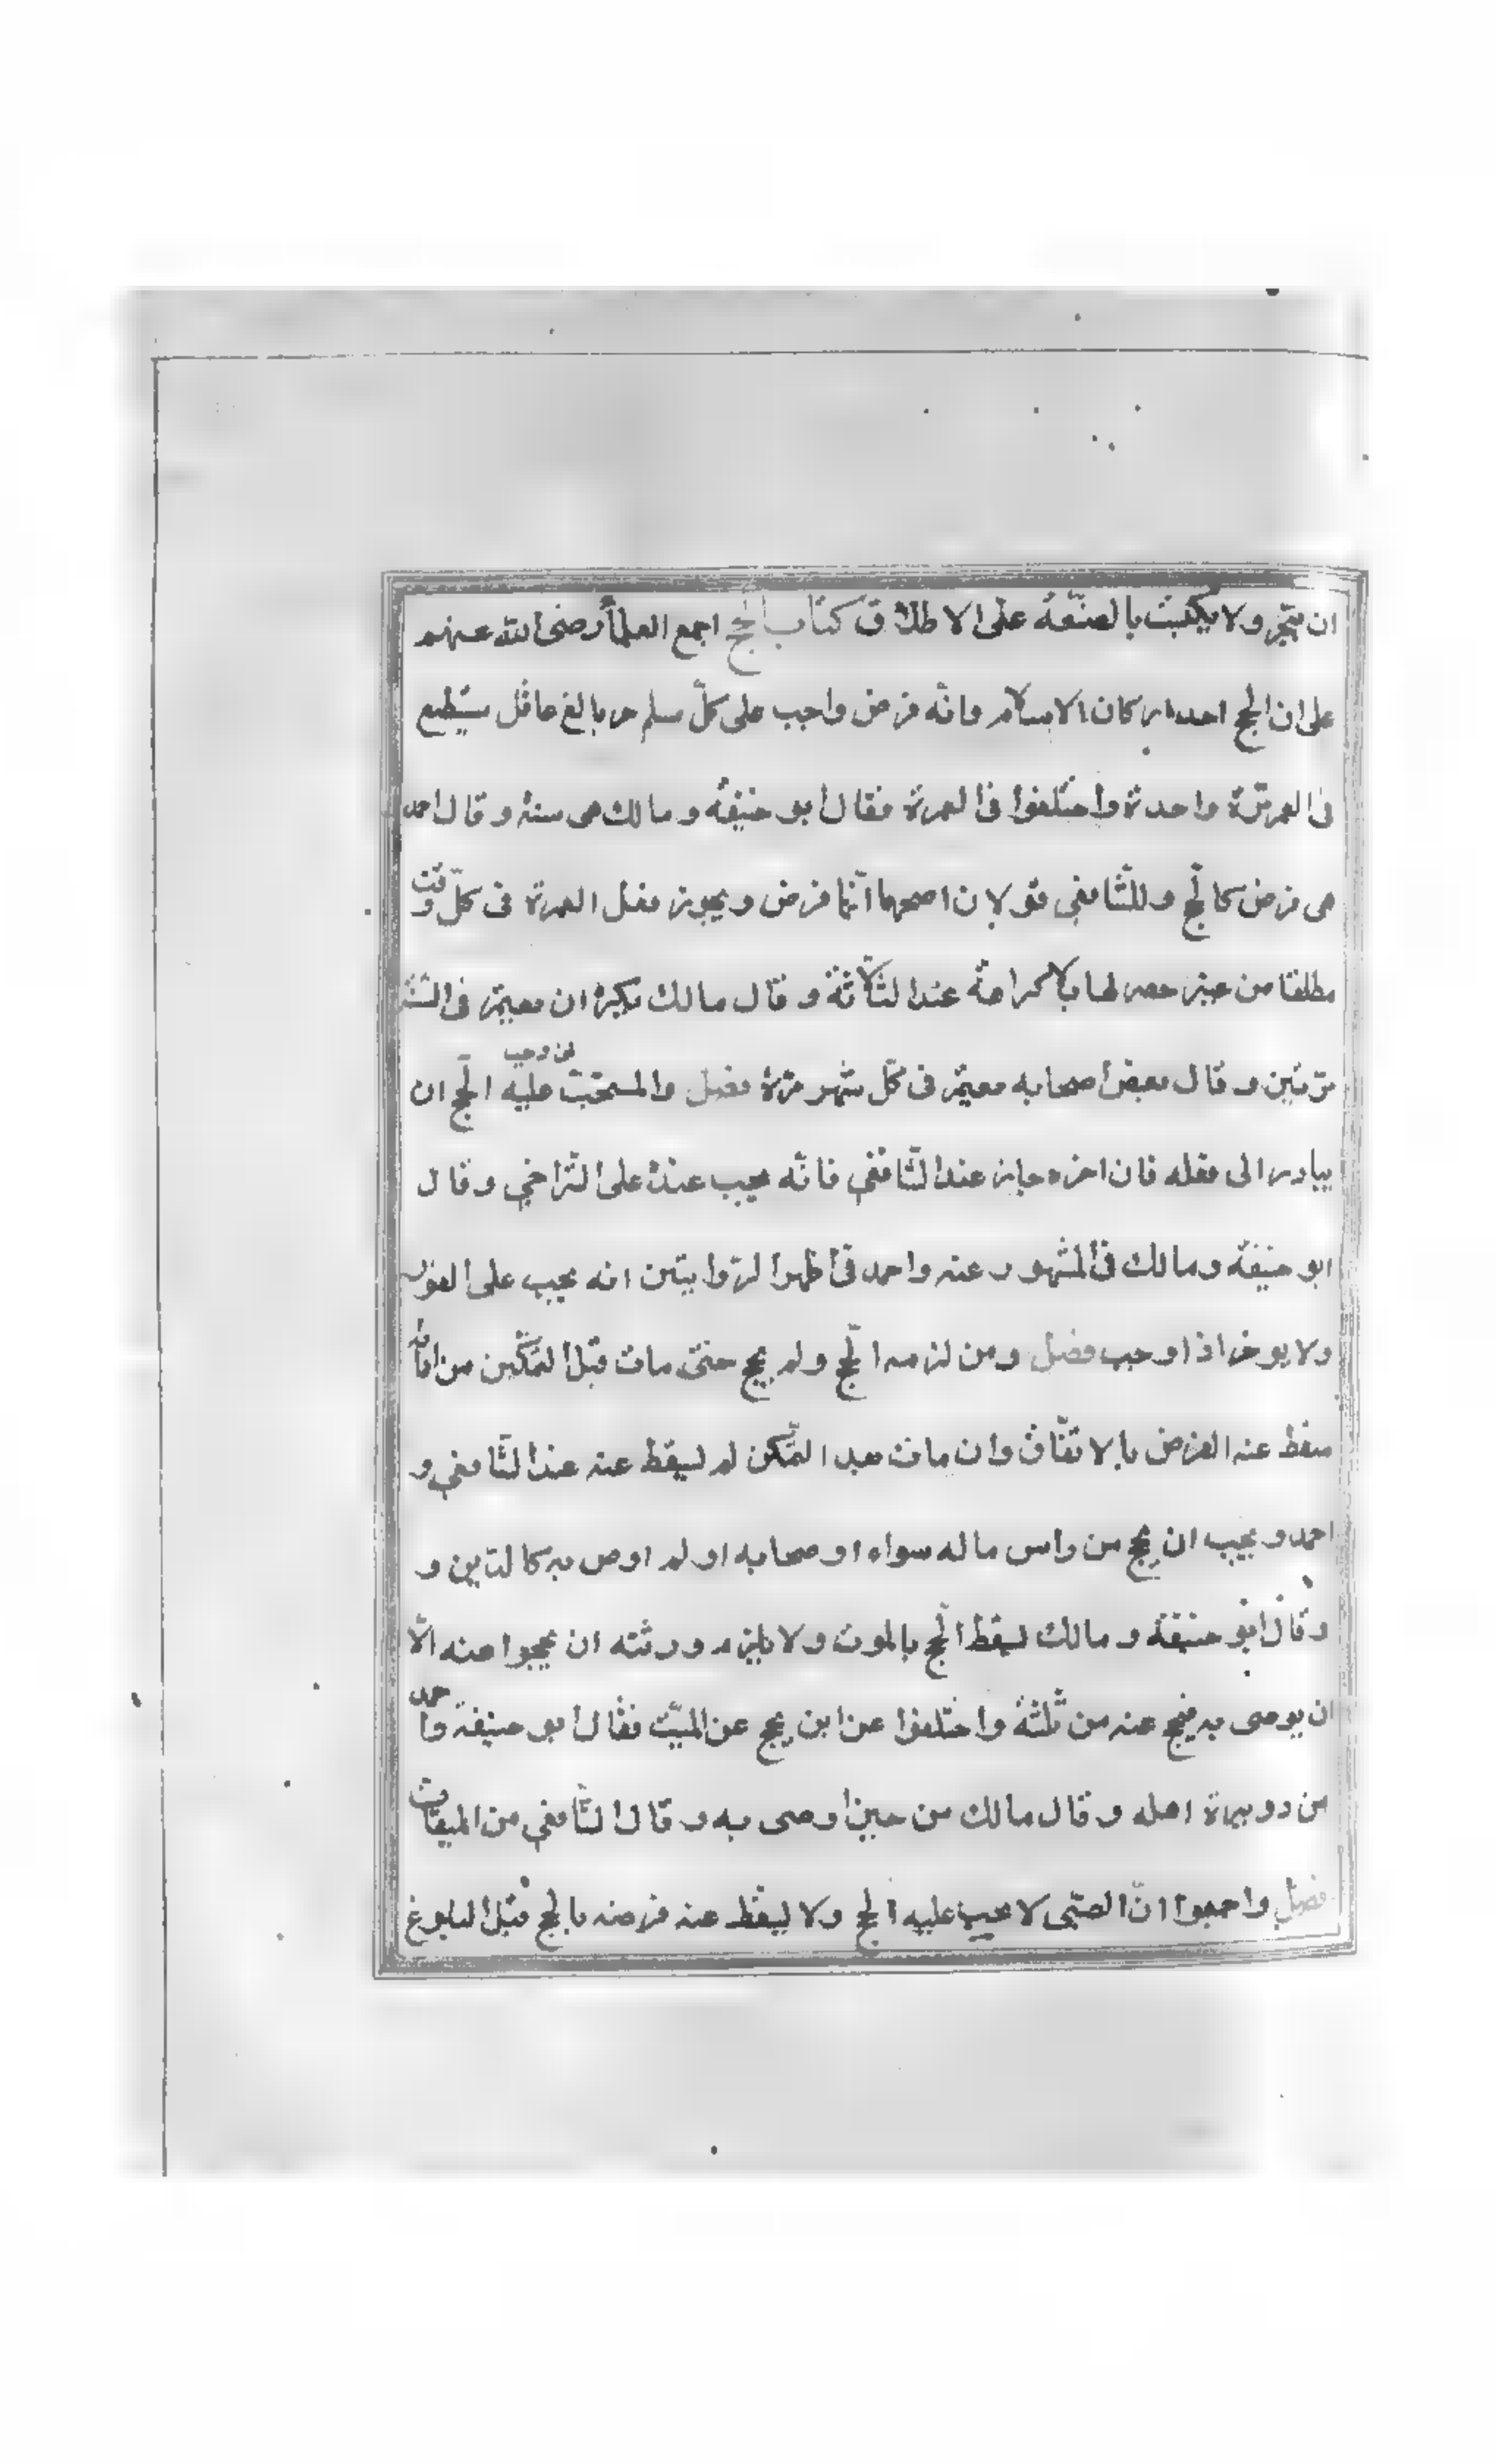 ان يتجر ولا يكتسب بالصنعة على الاطلاق كتاب الحج اجمع العلماء رضى الله عنهم
على ان الحج احد اركان الاسلام وانّه فرض واجب على كلّ مسلم حر بالغ عاقل يستطيع
فى العمر مرّة واحدة واختلفوا فى العمرة فقال ابو حنيفة ومالك هى سنة وقال احمد
هى فرض كالحج وللشّافعي قولان اصحهما انّها فرض ويجوز فعل العمرة فى كلّ وقت
مطلقا من غير حصر لها بلا كراهة عند الثلاثة وقال مالك يكره ان يعتمر فى السّنة
مرّتين وقال بعض اصحابه يعتمر فى كلّ شهر مرّة فصل والمستحبّ لمن وجب عليه الحج ان
يبادر الى فعله فان اخره جاز عند الشّافعي فانّه يجب عنده على التّراخي وقال
ابو حنيفة ومالك فى المشهور عنه واحمد فى اظهر الرّوايتين انه يجب على الفور
ولا يوخر اذا وجب فصل ومن لزمه الحج ولم يحج حتى مات قبل التمكّن من ادائه
سقط عنه الفرض بالاتّفاق وان مات بعد التمكّن لم يسقط عنه عند الشّافعي و
احمد ويجب ان يحج من راس ماله سواء اوصى به او لم اوص به كالدّين و
وقال ابو حنيفة ومالك يسقط الحج بالموت ولا يلزم ورثته ان يحجوا عنه الّا
ان يوصى به فيحج عنه من ثلثه واختلفوا من اين يحج عن الميّت فقال ابو حنيفة واحمد
من دويرة اهله وقال مالك من حين اوصى به وقال الشّافعي من الميقات
فصل واجمعوا انّ الصبّى لا يجب عليه الحج ولا يسقط عنه فرضه بالحج قبل البلوغ